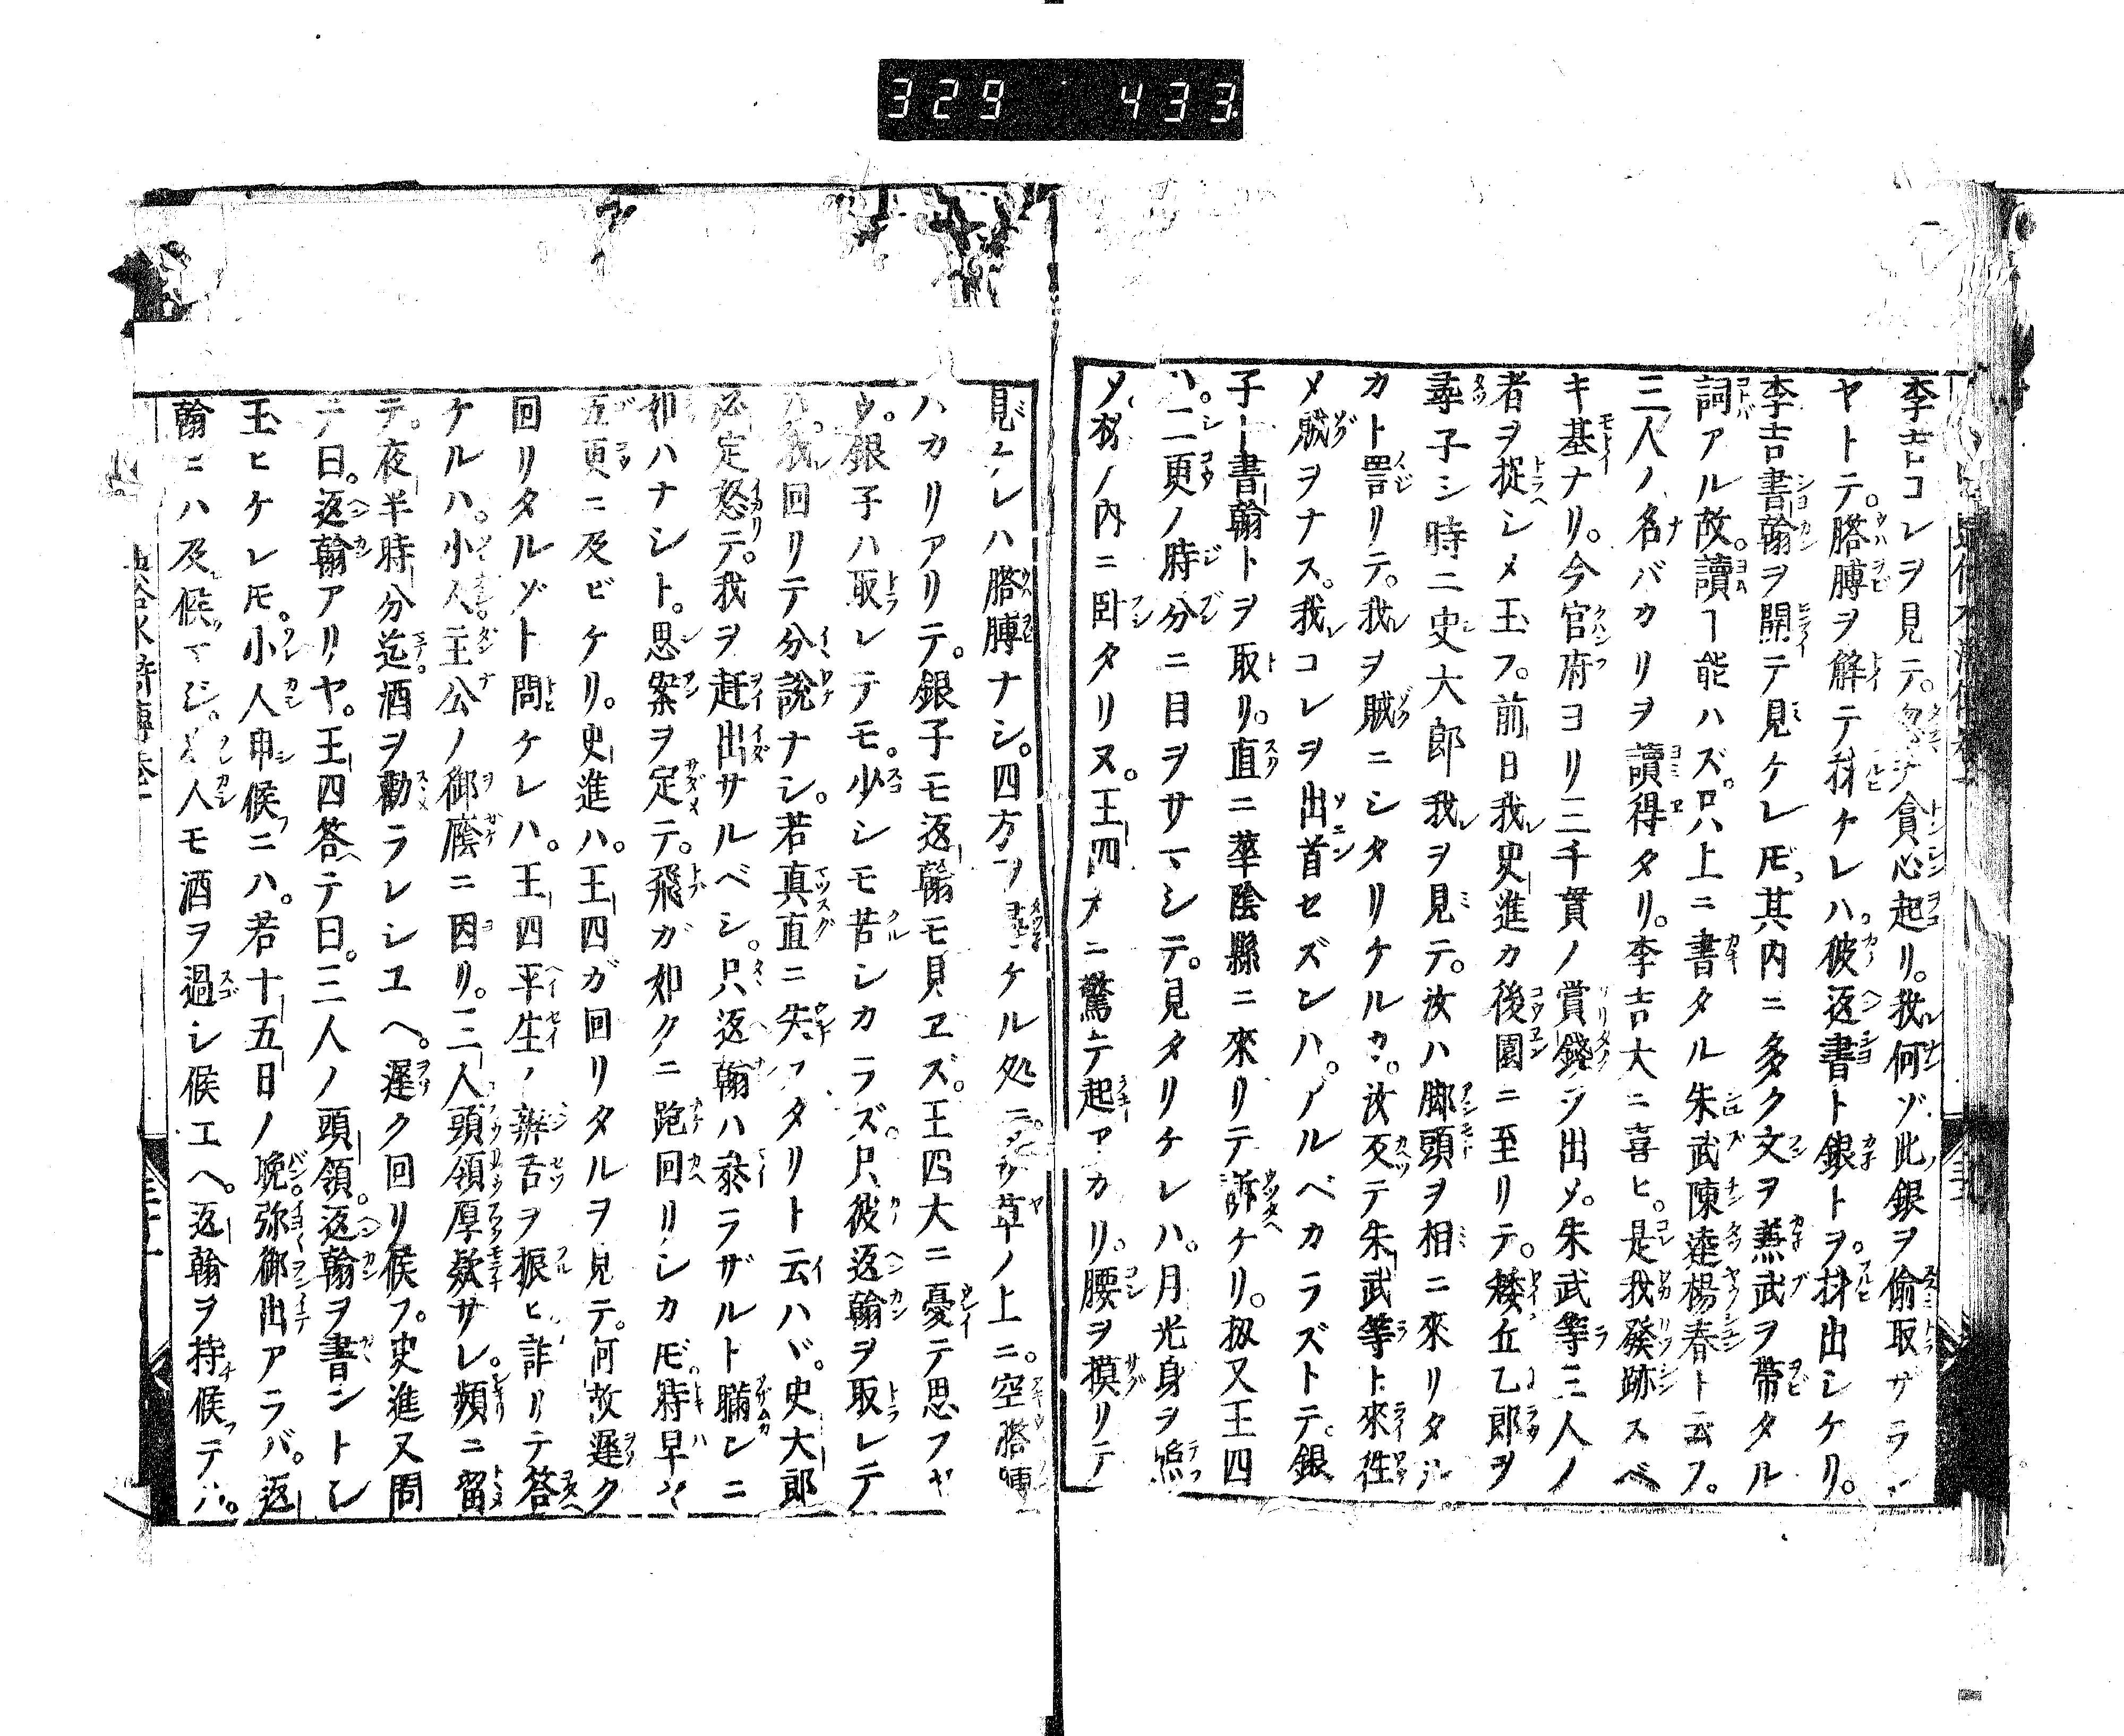 329 433
李吉コレヲ見テ。忽チ貪心起リ。我何ゾ此銀ヲ偷取サラン
ヤトテ。胳膊ヲ解テ抖ケレハ。彼返書ト銀トヲ。抖出シケリ。
李吉書翰ヲ開テ見ケレ𪜈。其内ニ多ク文ヲ兼武ヲ帶タル
詞アル故。讀ヿ能ハズ。只上ニ書タル朱武陳達楊春ト云フ。
三人ノ名バカリヲ讀得タリ。李吉大ニ喜ヒ。是我發跡スベ
キ基ナリ。今官府ヨリ三千貫ノ賞錢ヲ出ソ。朱武等三人ノ
者ヲ捉シメ玉フ。前日我史進カ後園ニ至リテ。矮丘乙郎ヲ
尋子シ時ニ史大郎我ヲ見テ。汝ハ脚頭ヲ相ニ來リタル
カト詈リテ。我ヲ賊ニシタリケルカ。汝反テ朱武等ト來徃
メ賊ヲナス。我コレヲ出首セズンハ。アルベカラズトテ。銀
子ト書翰トヲ取リ。直ニ華陰縣ニ來リテ訴ケリ。扨又王四
ハ。二更ノ時分ニ目ヲサマシテ。見タリケレハ。月光身ヲ
メ。林ノ内ニ臥タリヌ。王四大ニ驚テ起アカリ。腰ヲ摸リテ
見ケレハ胳膊ナシ。四方ヲ尋ケル処ニ。草ノ上ニ。空胳膊
ハカリアリテ。銀子モ返翰モ見ヱズ。王四大ニ憂テ思フヤ
ウ。銀子ハ取レテモ。少シモ苦シカラズ。只彼返翰ヲ取レテ
ハ。我回リテ分說ナシ。若真直ニ失フタリト云ハヾ。史大郎
必定怒テ。我ヲ赶出サルベシ。只返翰ハ參ラザルト瞞シニ
如ハナシト。思案ヲ定テ。飛ガ如クニ跑回リシカ𪜈。時早
五更ニ及ビケリ。史進ハ。王四ガ回リタルヲ見テ。何故遲ク
回リタルゾト問ケレハ。王四平生ノ辨舌ヲ振ヒ詐リテ答
ケルハ。小人主公ノ御廕ニ因リ。三人頭領厚欵サレ。頻ニ留
テ。夜半時分迄酒ヲ勸ラレシユヘ。遲ク回リ候フ。史進又問
テ曰。返翰アリヤ。王四答テ曰。三人ノ頭領。返翰ヲ書ントシ
玉ヒケレ𪜈。小人申候ニハ。若十五日ノ晩弥御出アラバ。返
翰ニハ及候マジ。小人モ酒ヲ過シ候エヘ。返翰ヲ持候テハ。